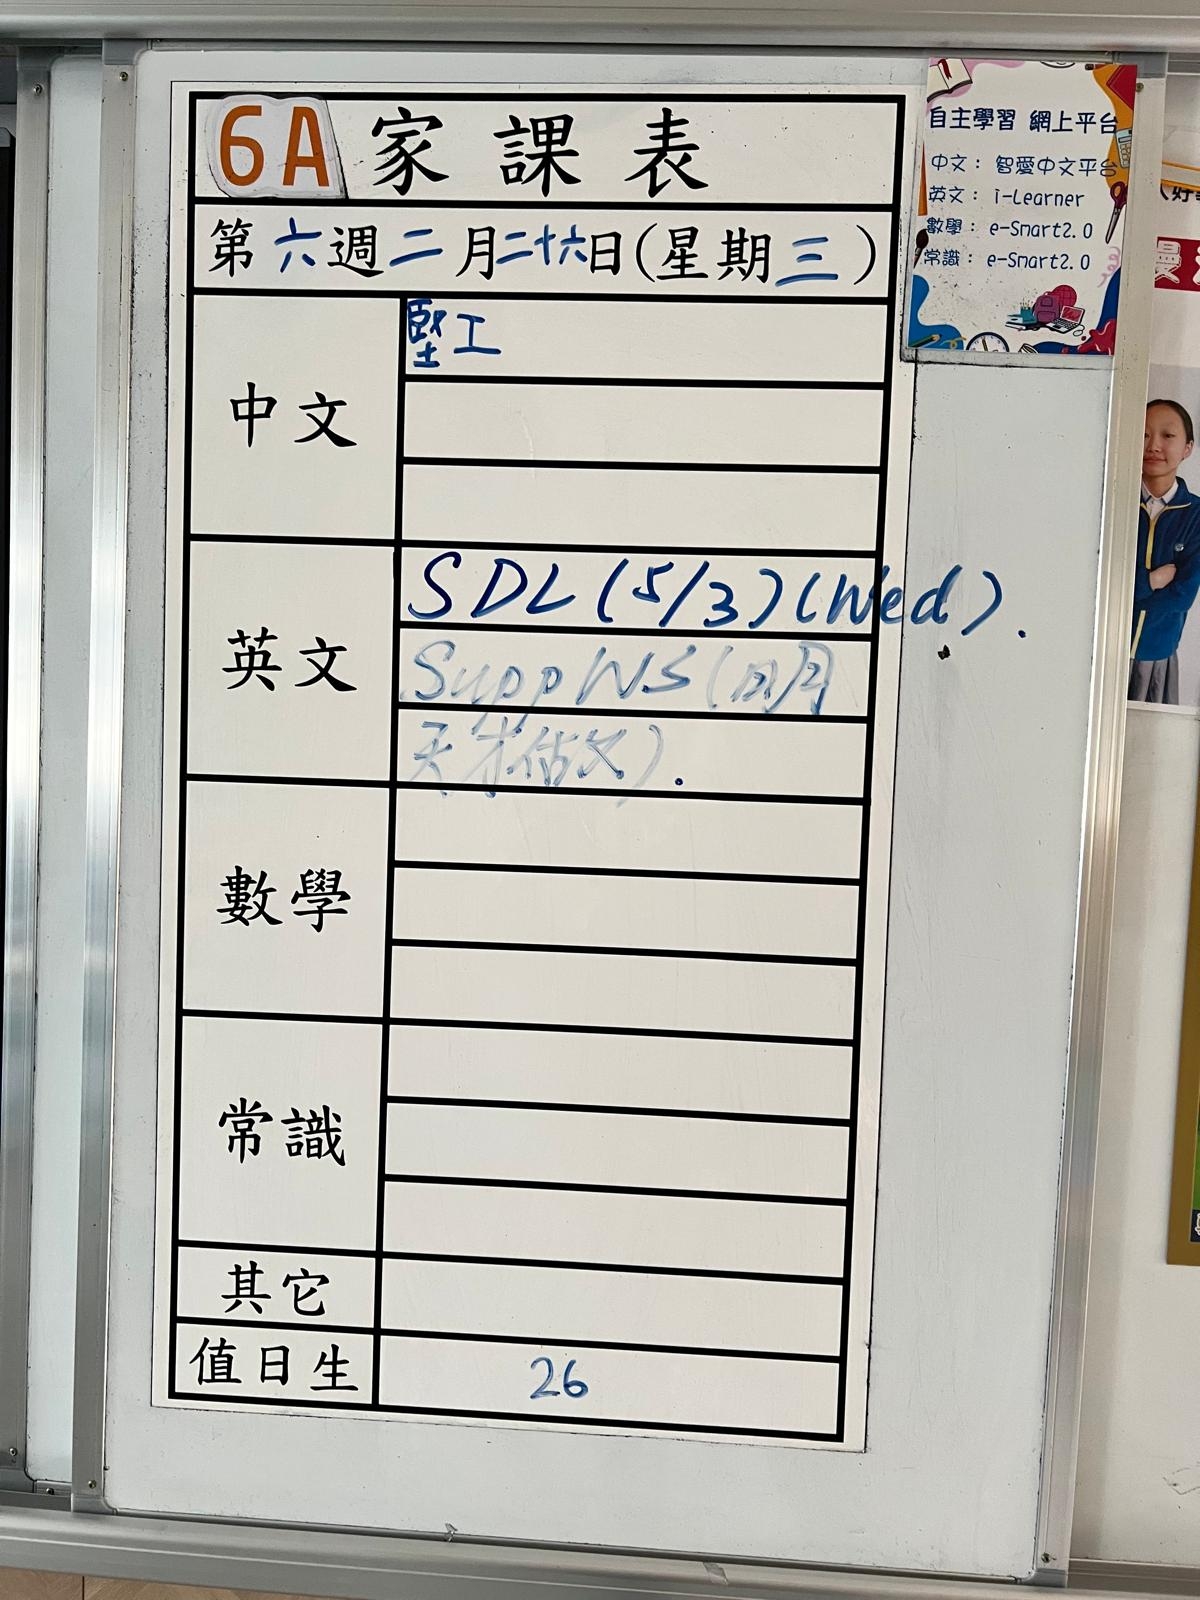 6A 家課表
第六週二月二十六日(星期三)
中文
堅工
英文
SDL (5/3) (Wed).
Supp WS (明
天才估文).
數學
常識
其它
值日生
26
自主學習 網上平台
中文： 智愛中文平台
英文： i-Learner
數學： e-Smart2.0
常識： e-Smart2.0